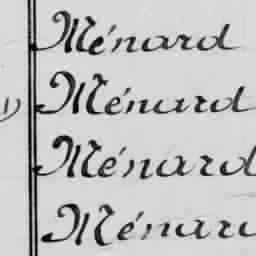 Ménard
Ménard
Ménard
Ménard